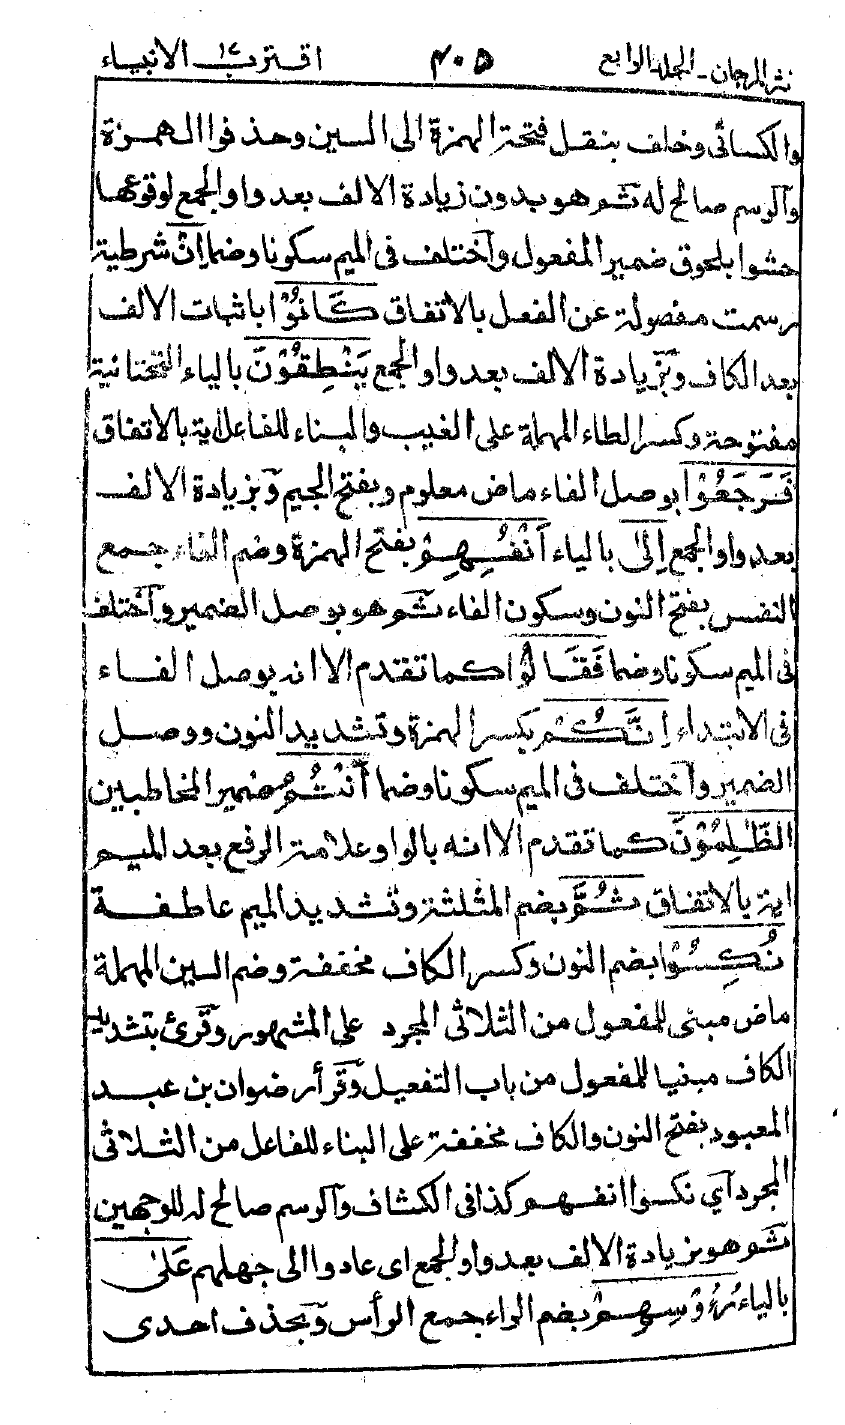 نثر المرجان - الجلد الرابع ٤٠٥ اقترب ١٧ الانبياء
والكسائى وخلف بنقل فتحة الهمزة الى السين وحذفوا الهمزة
والرسم صالح له ثم هو بدون زيادة الالف بعد واو الجمع لوقوعها
حشوا بلحوق ضمير المفعول واختلف فى الميم سكونا وضما اِنْ شرطية
رسمت مفصولة عن الفعل بالاتفاق كَانُوْا باثبات الالف
بعد الكاف وبزيادة الالف بعد واو الجمع يَنْطِقُوْنَ بالياء التحتانية
مفتوحة وكسر الطاء المهملة على الغيب والبناء للفاعل اية بالاتفاق
فَرَجَعُوْا بوصل الفاء ماض معلوم وبفتح الجيم وبزيادة الالف
بعد واو الجمع اِلٰى بالياء اَنْفُسِهِمْ بفتح الهمزة وضم الفاء جمع
النفس بفتح النون وسكون الفاء ثم هو بوصل الضمير واختلف
فى الميم سكونا وضما فَقَالُوْا كما تقدم الا انه بوصل الفاء
فى الابتداء اِنَّكُمْ بكسر الهمزة وتشديد النون ووصل
الضمير واختلف فى الميم سكونا وضما اَنْتُمُ ضمير المخاطبين
الظّٰلِمُوْنَ كما تقدم الا انه بالواو علامة الرفع بعد الميم
اية بالاتفاق ثُمَّ بضم المثلثة وتشديد الميم عاطفة
نُكِسُوْا بضم النون وكسر الكاف مخففة وضم السين المهملة
ماض مبنى للمفعول من الثلاثى المجرد على المشهور وقرئ بتشديد
الكاف مبنيا للمفعول من باب التفعيل وقرأ رضوان بن عبد
المعبود بفتح النون والكاف مخففة على البناء للفاعل من الثلاثى
المجرد اى نكسوا انفسهم كذا فى الكشاف والرسم صالح له للوجهين
ثم هو بزيادة الالف بعد واو الجمع اى عادوا الى جهلهم عَلٰى
بالياء رُءُوْسِهِمْ بضم الراء جمع الرأس وبحذف احدى